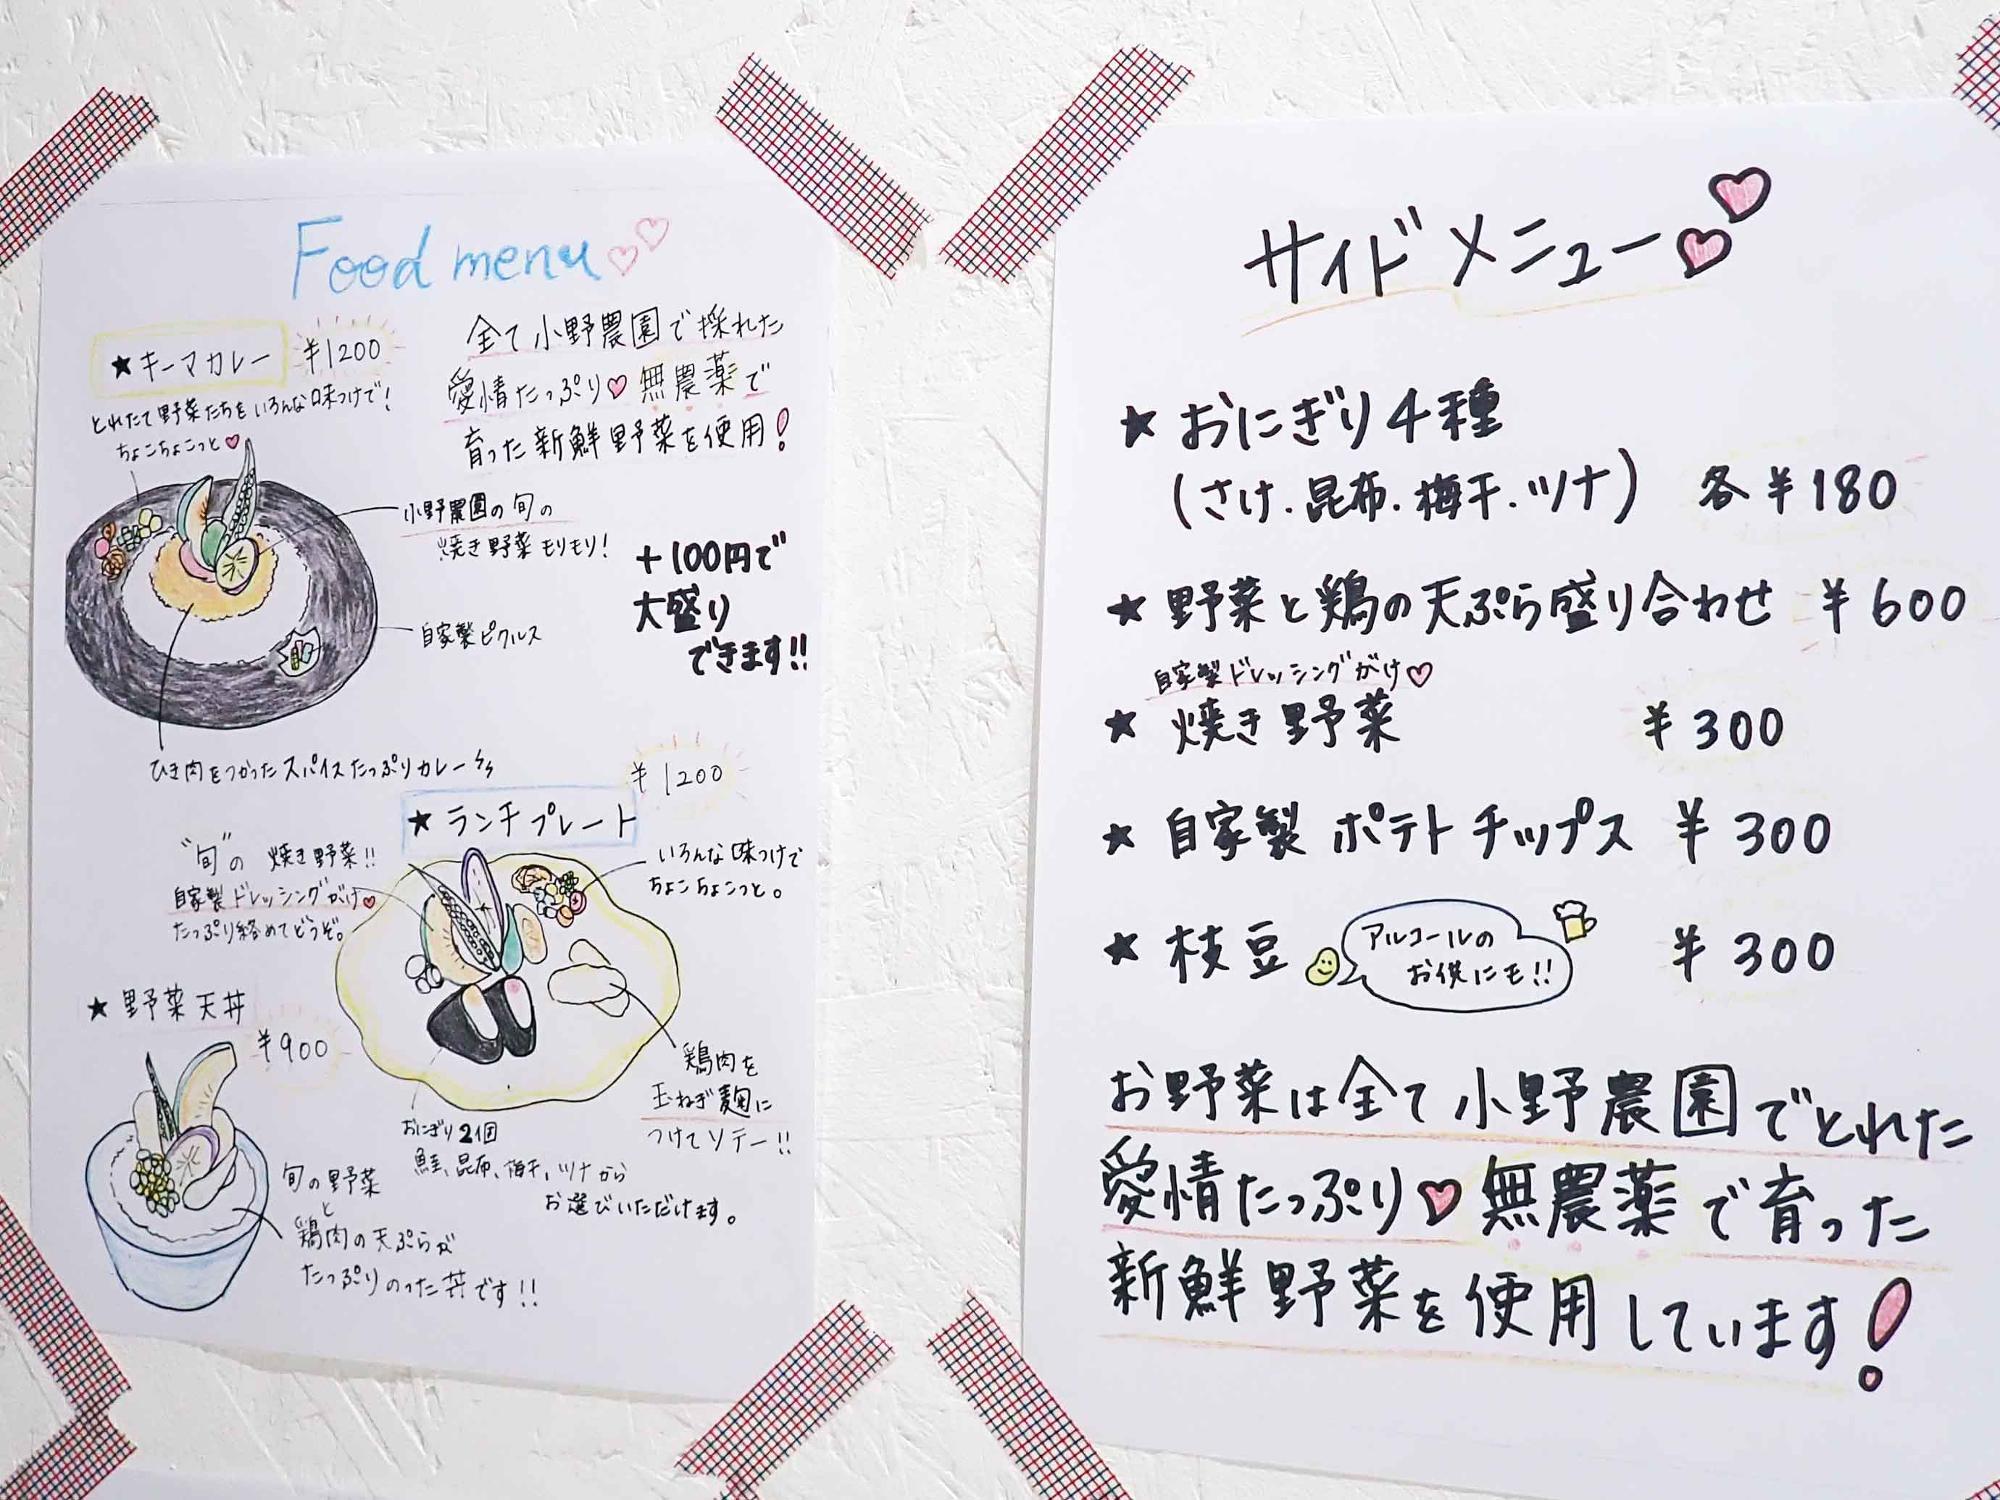 Food menu
★キーマカレー ¥1200
とれたて野菜たちをいろんな味つけで!
ちょこちょこっと♥
全て小野農園で採れた
愛情たっぷり♥無農薬で
育った新鮮野菜を使用!
小野農園の旬の
焼き野菜モリモリ!
+100円で
大盛り
できます!!
自家製ピクルス
ひき肉をつかったスパイスたっぷりカレー
★ランチプレート ¥1200
"旬"の焼き野菜!!
自家製ドレッシングがけ♥
たっぷり絡めてどうぞ。
いろんな味つけで
ちょこちょこっと。
鶏肉を
玉ねぎ麹に
つけてソテー!!
おにぎり2個
鮭、昆布、梅干、ツナから
お選びいただけます。
★野菜天丼
¥900
旬の野菜
と
鶏肉の天ぷらが
たっぷりのった丼です!!
サイドメニュー
★おにぎり4種
(さけ.昆布.梅干.ツナ) 各¥180
★野菜と鶏の天ぷら盛り合わせ ¥600
自家製ドレッシングがけ♡
★焼き野菜 ¥300
★自家製ポテトチップス ¥300
★枝豆 ¥300
アルコールの
お供にも!!
お野菜は全て小野農園でとれた
愛情たっぷり♥無農薬で育った
新鮮野菜を使用しています!